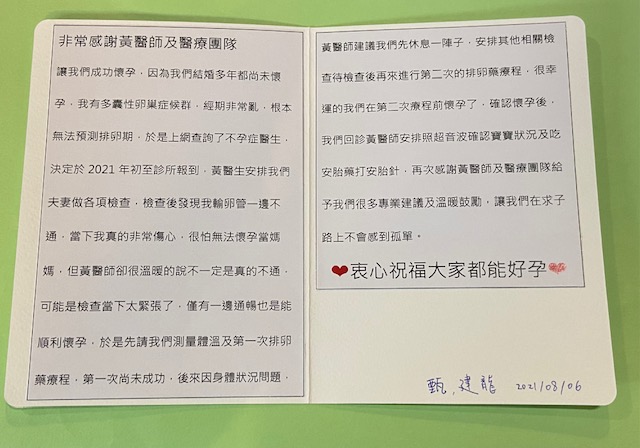 非常感謝黃醫師及醫療團隊
讓我們成功懷孕，因為我們結婚多年都尚未懷
孕，我有多囊性卵巢症候群，經期非常亂，根本
無法預測排卵期，於是上網查詢了不孕症醫生，
決定於 2021 年初至診所報到，黃醫生安排我們
夫妻做各項檢查，檢查後發現我輸卵管一邊不
通，當下我真的非常傷心，很怕無法懷孕當媽
媽，但黃醫師卻很溫暖的說不一定是真的不通，
可能是檢查當下太緊張了，僅有一邊通暢也是能
順利懷孕，於是先請我們測量體溫及第一次排卵
藥療程，第一次尚未成功，後來因身體狀況問題，
黃醫師建議我們先休息一陣子，安排其他相關檢
查待檢查後再來進行第二次的排卵藥療程，很幸
運的我們在第二次療程前懷孕了，確認懷孕後，
我們回診黃醫師安排照超音波確認寶寶狀況及吃
安胎藥打安胎針，再次感謝黃醫師及醫療團隊給
予我們很多專業建議及溫暖鼓勵，讓我們在求子
路上不會感到孤單。
❤衷心祝福大家都能好孕❤
甄，建龍 2021/08/06